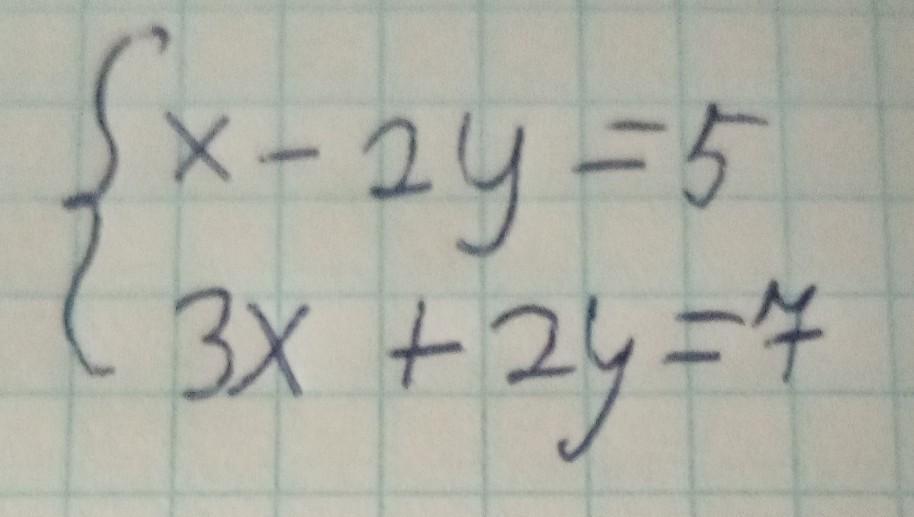 x - 2y = 5
3x + 2y = 7